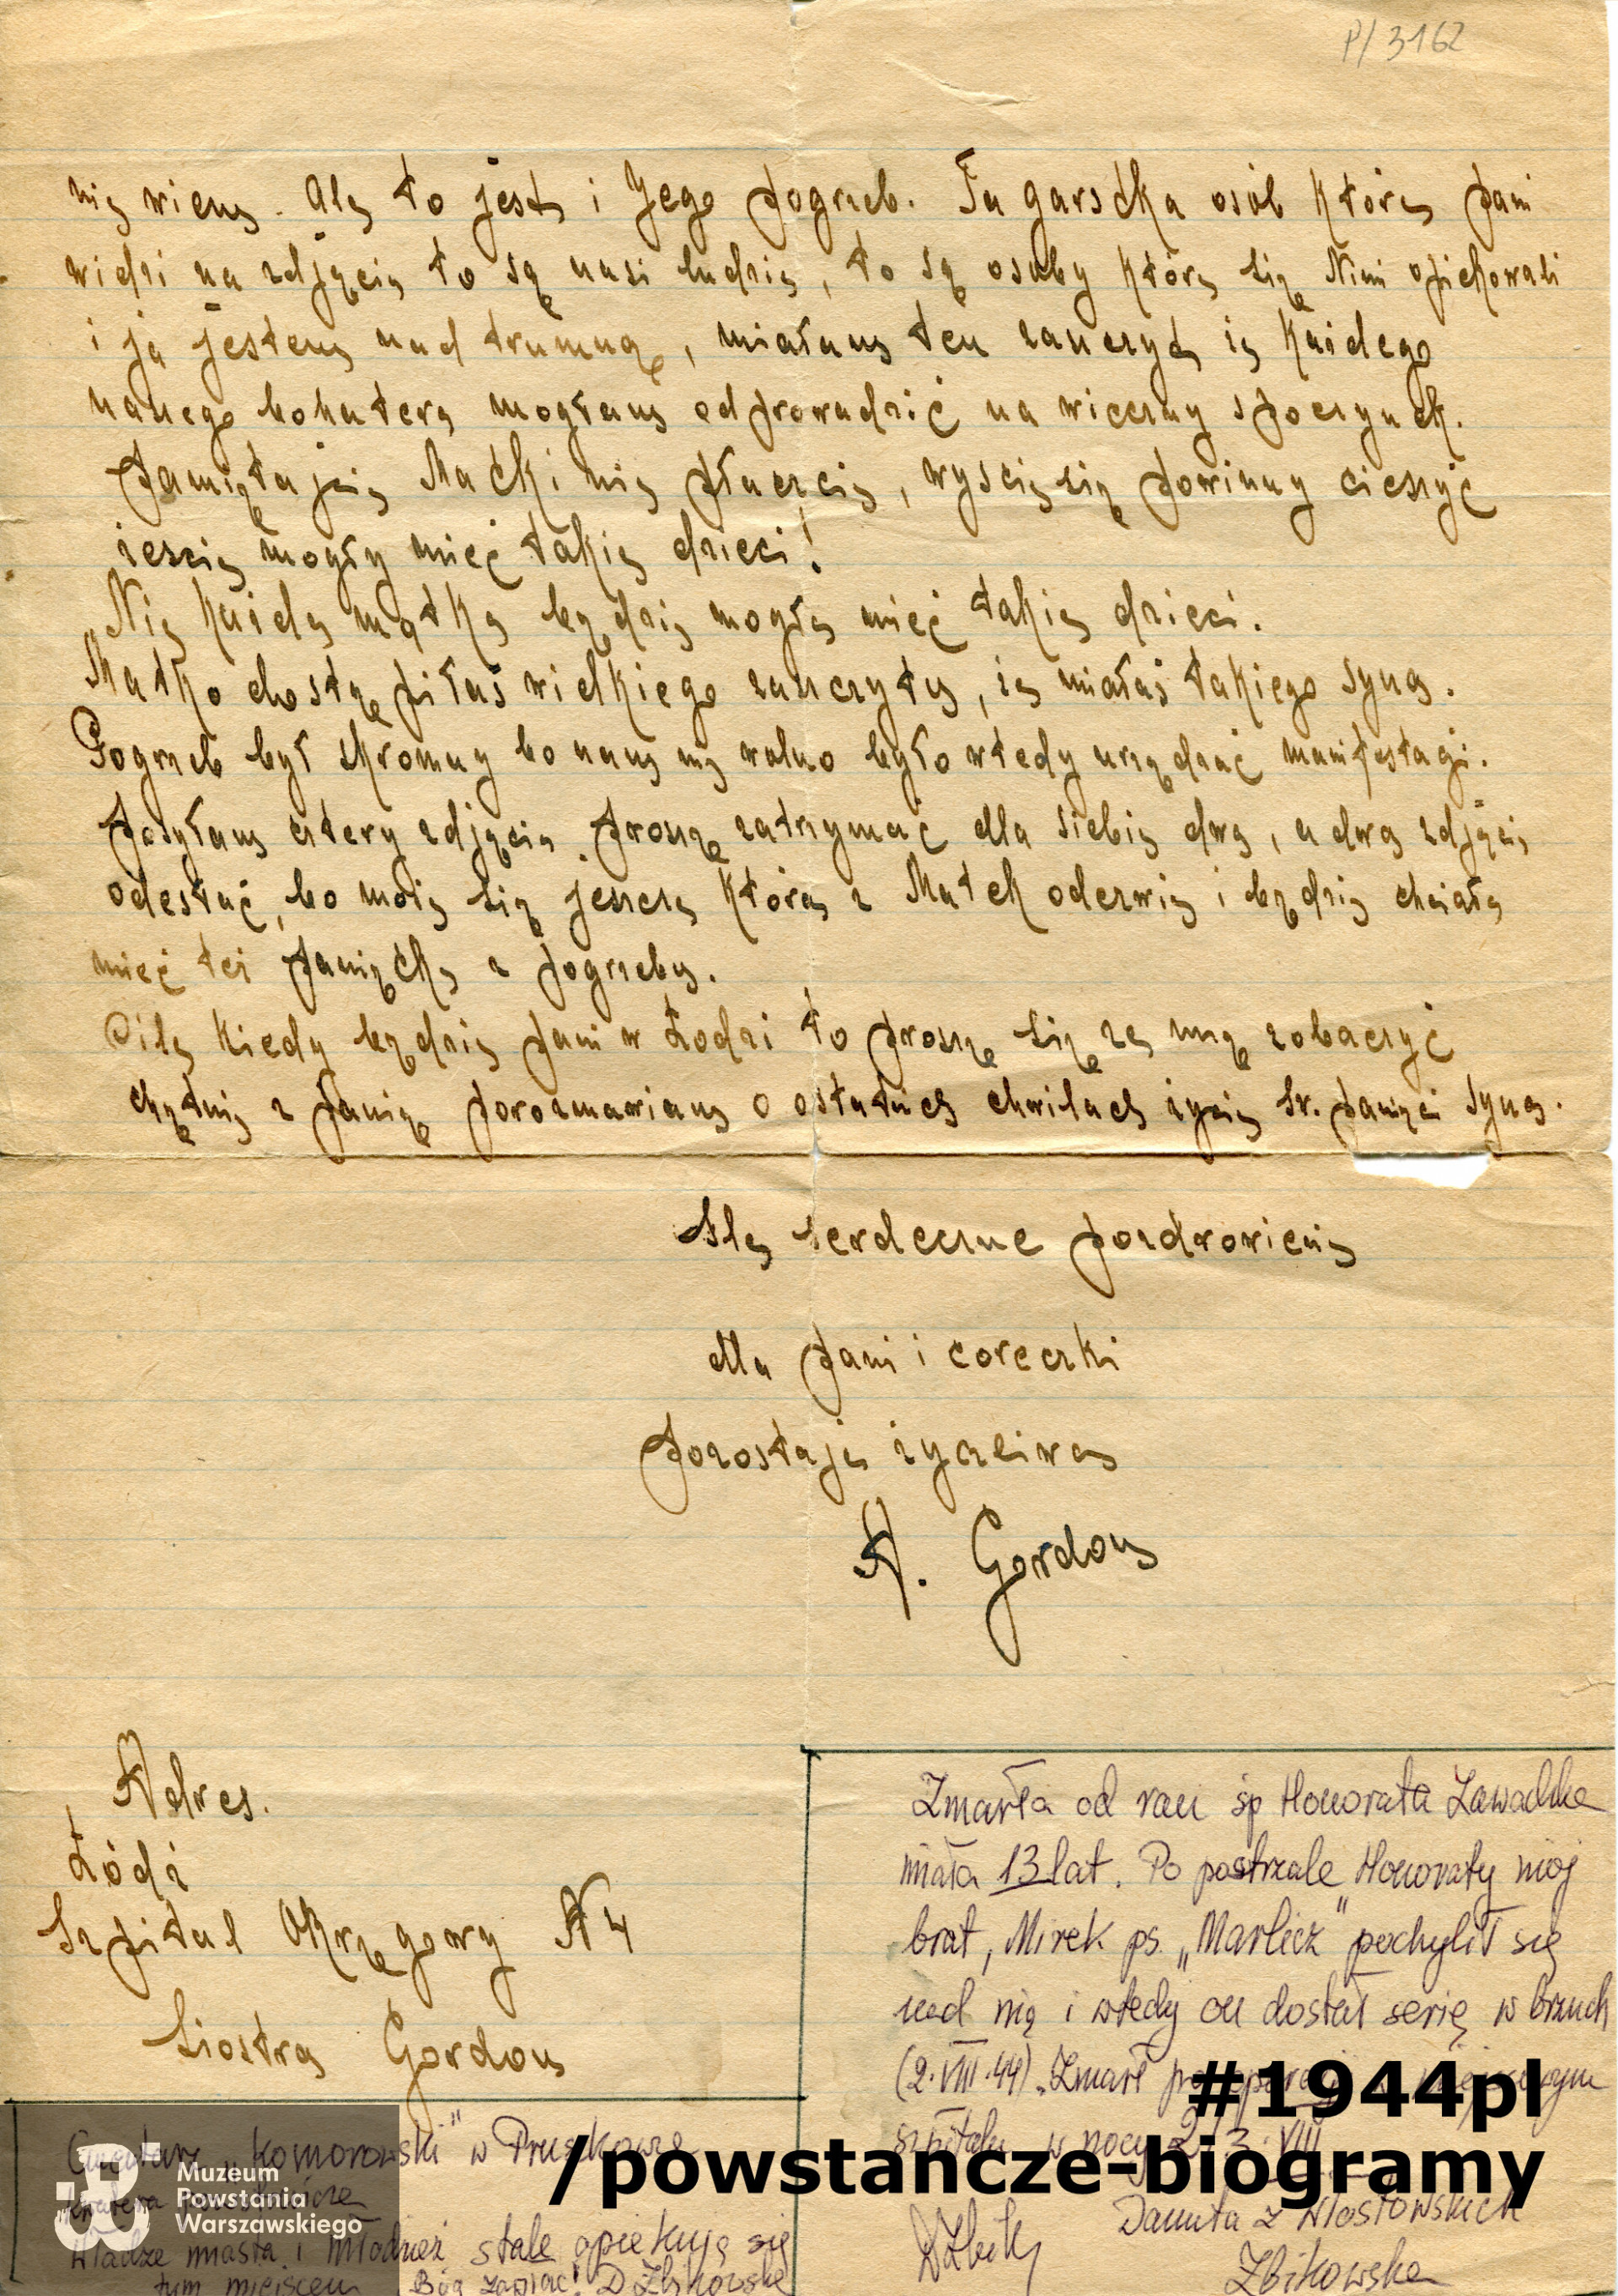 P/3162
nie wiem. Ale to jest i Jego pogrzeb. Ta garstka osób które pani
widzi na zdjęciu to są nasi ludzie, to są osoby które się Nimi opiekowali
i ja jestem nad trumną, miałam ten zaszczyt, że każdego
naszego bohatera mogłam odprowadzić na wieczny spoczynek.
Pamiętajcie Matki nie płaczcie, wyście się powinny cieszyć
żeście mogły mieć takie dzieci!
„Nie każda matka będzie mogła mieć takie dzieci.
Matko dostąpiłaś wielkiego zaszczytu, że miałaś takiego syna.
Pogrzeb był skromny bo nam nie wolno było wtedy urządzać manifestacji.
Posyłam cztery zdjęcia. Proszę zatrzymać dla siebie dwa, a dwa zdjęcia
odesłać, bo może się jeszcze która z Matek odezwie i będzie chciała
mieć też pamiątkę z pogrzebu.
O ile kiedy będzie pani w Łodzi to proszę się ze mną zobaczyć
chętnie z panią porozmawiam o ostatnich chwilach życia św. pamięci syna.
Ślę serdeczne pozdrowienia
dla pani i coreczki
pozostaję życzliwa
A. Gordon
Adres.
Łódź
Szpital Okręgowy N 4
Siostra Gordon
Zmarła od ran śp Honorata Zawadzka
miała 13 lat. Po postrzale Honoraty mój
brat, Mirek ps. „Marlicz" pochylił się
nad nią i wtedy on dostał serię w brzuch
(2.VIII.44). Zmarł po operacji w
szpitalu w nocy 2/3 VIII
Danuta z Wiosłowskich
Zbikowska
Cmentarz „Komorowski" w Pruszkowie
Władze miasta i młodzież stale opiekują się
tym miejscem Bóg zapłać! D Zbikowska
#1944pl
/powstancze-biogramy
Muzeum
Powstania
Warszawskiego